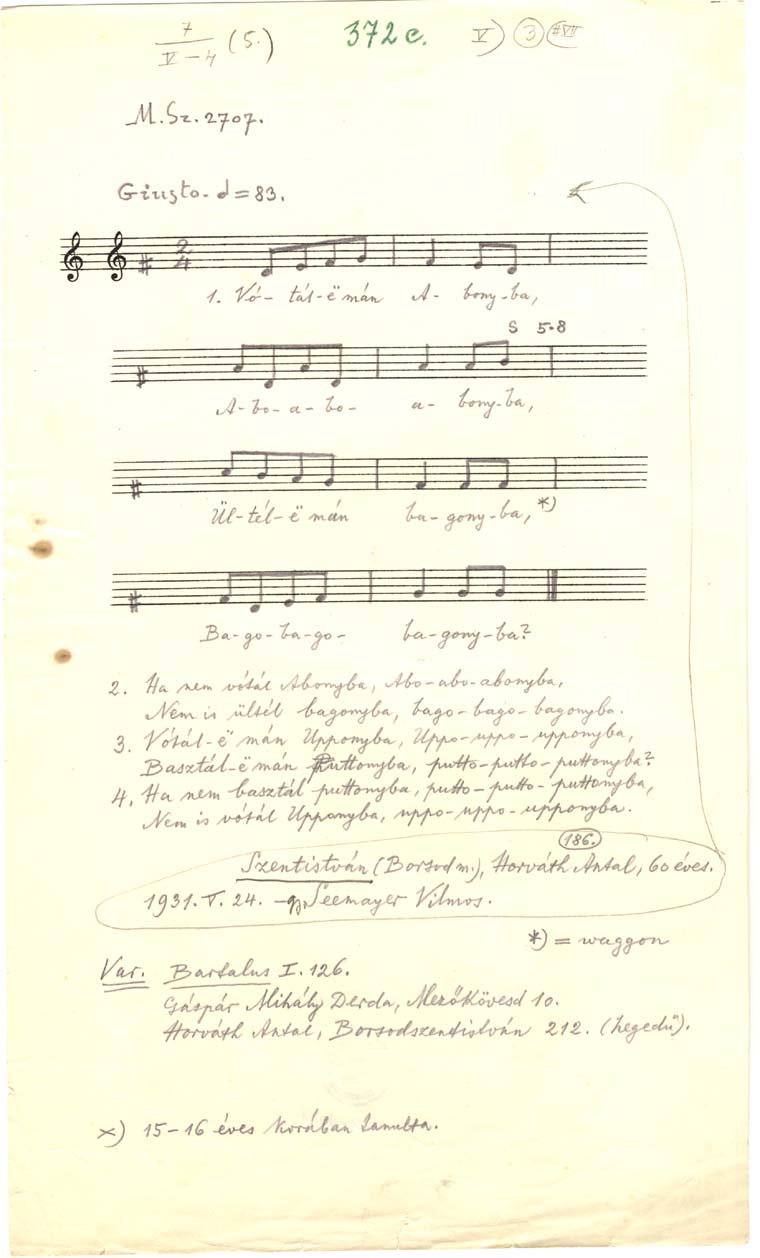 7
V-4 (5.) 372 c. V) 3 #VII
M.Sz. 2707.
Giusto. d = 83.
2
4
1. Vó- tál-ë mán A- bony-ba,
S 5-8
A-bo-a-bo- a- bony-ba,
Ül-tél-ë mán ba-gony-ba, *)
Ba-go-ba-go- ba-gony-ba?
2. Ha nem vótál Abonyba, Abo-abo-abonyba,
Nem is ültél bagonyba, bago-bago-bagonyba.
3. Vótál-ë mán Upponyba, Uppo-uppo-upponyba,
Basztál-ë mán puttonyba, putto-putto-puttonyba?
4. Ha nem basztál puttonyba, putto-putto-puttonyba,
Nem is vótál Upponyba, uppo-uppo-upponyba.
186.
Szentistván (Borsod m.), Horváth Antal, 60 éves.
1931. V. 24. - Seemayer Vilmos.
*) = waggon
Var. Bartalus I. 126.
Gáspár Mihály Derda, Mezőkövesd 10.
Horváth Antal, Borsodszentistván 212. (hegedű).
x) 15-16 éves korában tanulta.